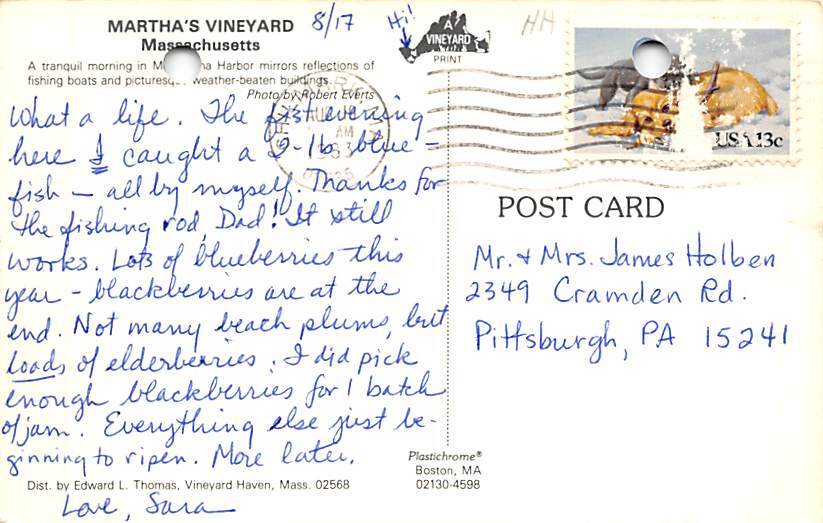 MARTHA'S VINEYARD
Massachusetts
8/17
Hi!
A
VINEYARD
PRINT
HH
A tranquil morning in Harbor mirrors reflections of
fishing boats and weather-beaten buildings.
Photo by Robert Everts
What a life. The fist evening
here I caught a 2-lb blue-
fish - all by myself. Thanks for
the fishing rod, Dad! It still
works. Lots of blueberries this
year - blackberries are at the
end. Not many beach plums, but
loads of elderberries. I did pick
enough blackberries for 1 batch
of jam. Everything else just be-
ginning to ripen. More later.
Love, Sara
Dist. by Edward L. Thomas, Vineyard Haven, Mass. 02568
Plastichrome®
Boston, MA
02130-4598
AUG
AM
USA 13c
POST CARD
Mr. & Mrs. James Holben
2349 Cramden Rd.
Pittsburgh, PA 15241